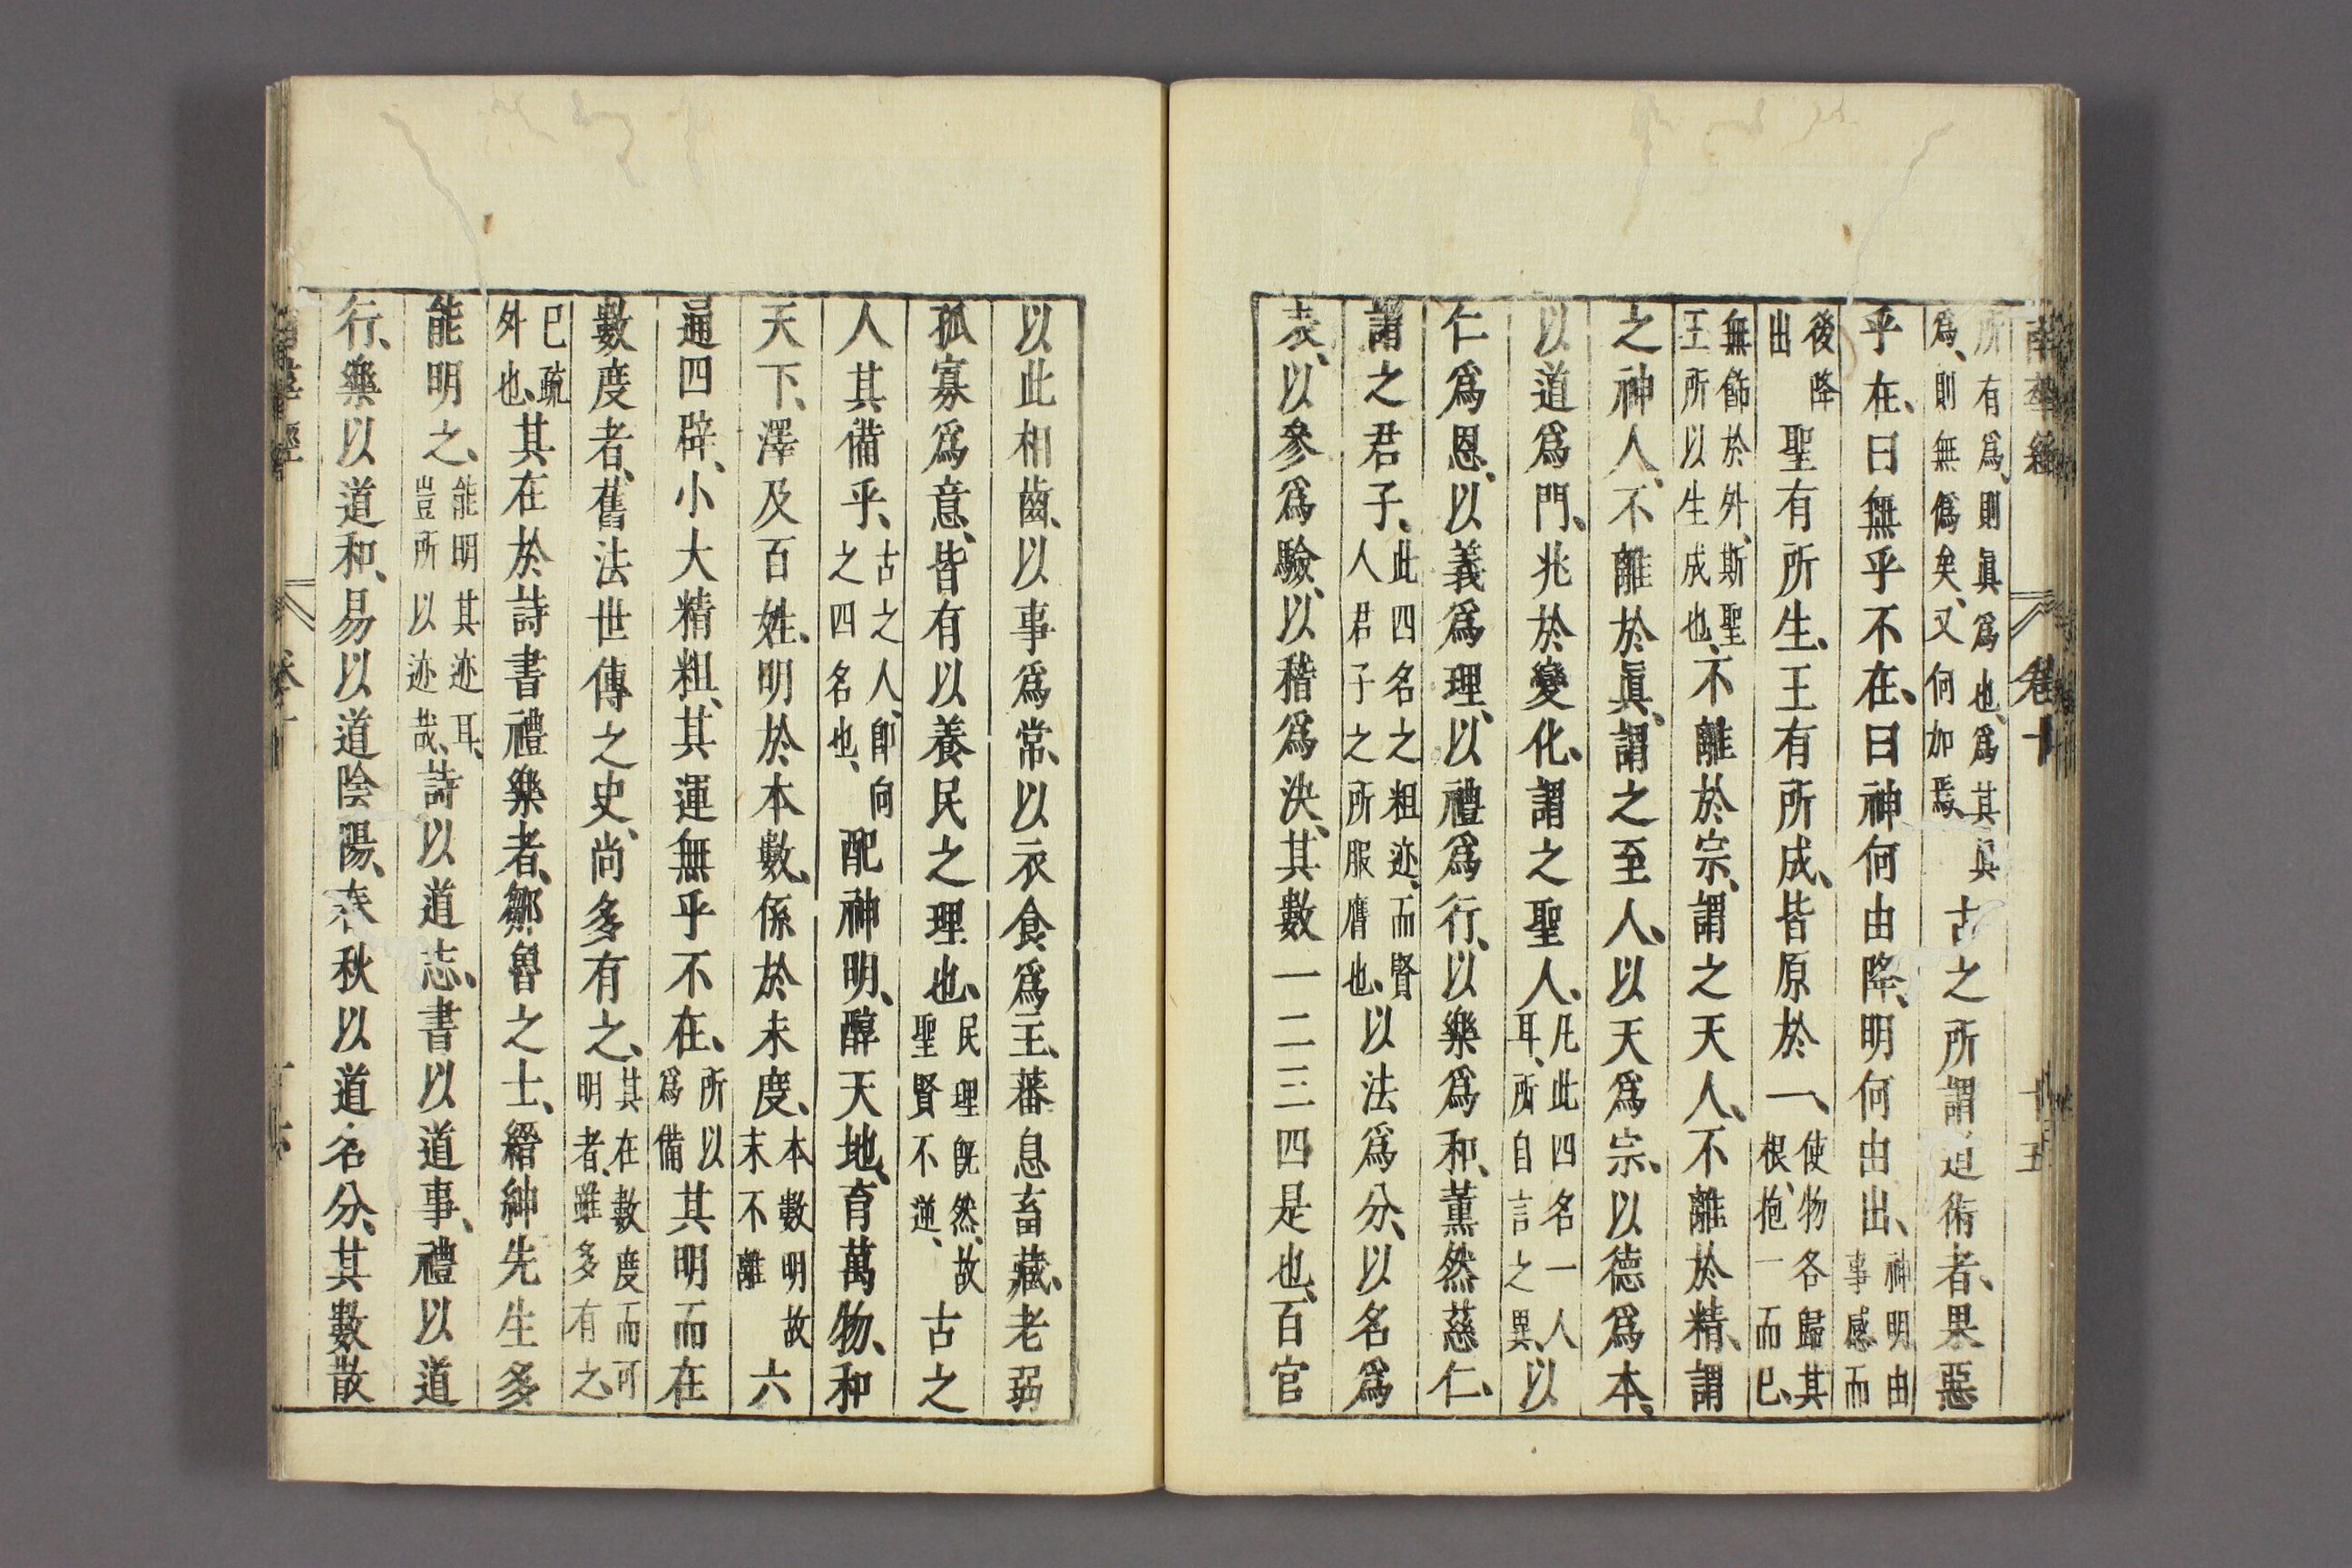 南華經 卷十 十五
所有爲、則眞爲也、爲其眞爲、則無僞矣、又何加焉、古之所謂道術者、果惡
乎在、曰無乎不在、曰神何由降、明何由出、神明由事感而
後降出聖有所生、王有所成、皆原於一、使物各歸其根、抱一而已、
無飾於外、斯聖王所以生成也、不離於宗、謂之天人、不離於精、謂
之神人、不離於眞、謂之至人、以天爲宗、以德爲本、
以道爲門、兆於變化、謂之聖人、凡此四名一人耳、所自言之異、以
仁爲恩、以義爲理、以禮爲行、以樂爲和、薰然慈仁、
謂之君子、此四名之粗迹、而賢人君子之所服膺也、以法爲分、以名爲
表、以參爲驗、以稽爲決、其數一二三四是也、百官
以此相齒、以事爲常、以衣食爲主、蕃息畜藏、老弱
孤寡爲意、皆有以養民之理也、民理既然、故聖賢不逆、古之
人其備乎、古之人、卽向之四名也、配神明、醇天地、育萬物、和
天下、澤及百姓、明於本數、係於末度、本數明故末不離六
通四辟、小大精粗、其運無乎不在、所以爲備其明而在
數度者、舊法世傳之史、尚多有之、其在數度而可明者、雖多有之、
已疏外也、其在於詩書禮樂者、鄒魯之士、縉紳先生多
能明之、能明其迹耳、豈所以迹哉、詩以道志、書以道事、禮以道
行、樂以道和、易以道陰陽、春秋以道名分、其數散